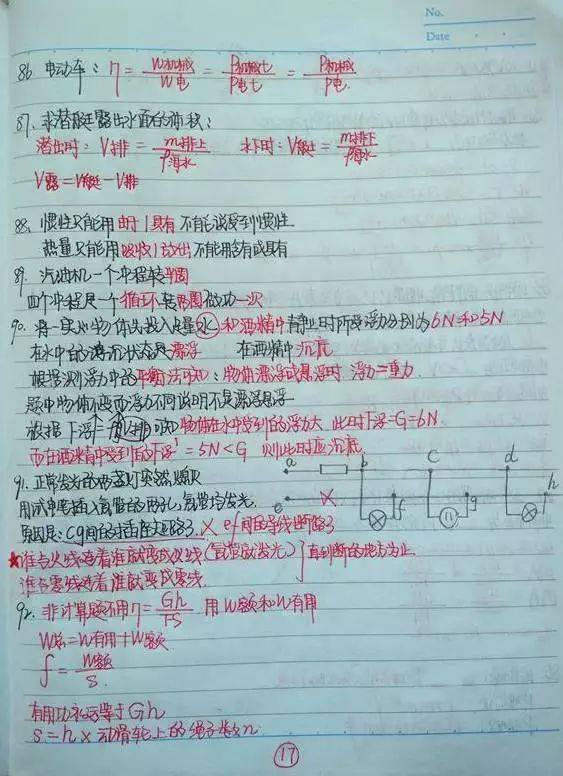 No.
Date
86. 电动车：η = W机械/W电 = P机械t/P电t = P机械/P电
87. 求潜艇露出水面的体积：
潜出时：V排 = m排上/ρ海水 水下时：V艇 = m排下/ρ海水
V露 = V艇 - V排
88. 惯性只能用由于/具有 不能说受到惯性
热量只能用吸收/放出 不能用含有或具有
89. 汽油机一个冲程转半周
四个冲程是一个循环，转两周做功一次
90. 将一实心物体先投入足量水和酒精中 静止时所受浮力分别为6N和5N
在水中的沉浮状态是漂浮 在酒精中沉底
根据测浮力中的平衡法可知：物体漂浮或悬浮时 浮力=重力
题中物体不变而浮力不同说明不是漂浮悬浮
物体在水中受到的浮力大 此时F浮=G=6N
而在酒精中受到的F浮' = 5N < G 则此时应沉底
91. 正常发光的两盏灯突然熄灭
用试电笔插入氖管的两孔，氖管均发光.
原因是：cg间的插座短路了. × ef间的导线断路了
a b c d
e f g h
★谁与火线连着谁就变成火线（氖管就发光） 直到断的地方为止
谁与零线连着谁就变成零线
92. 非计算题不用η = Gh/FS 用W额和W有用
W总 = W有用 + W额
f = W额/S
有用功永远等于Gh
S = h × 动滑轮上的绳子段数n
17